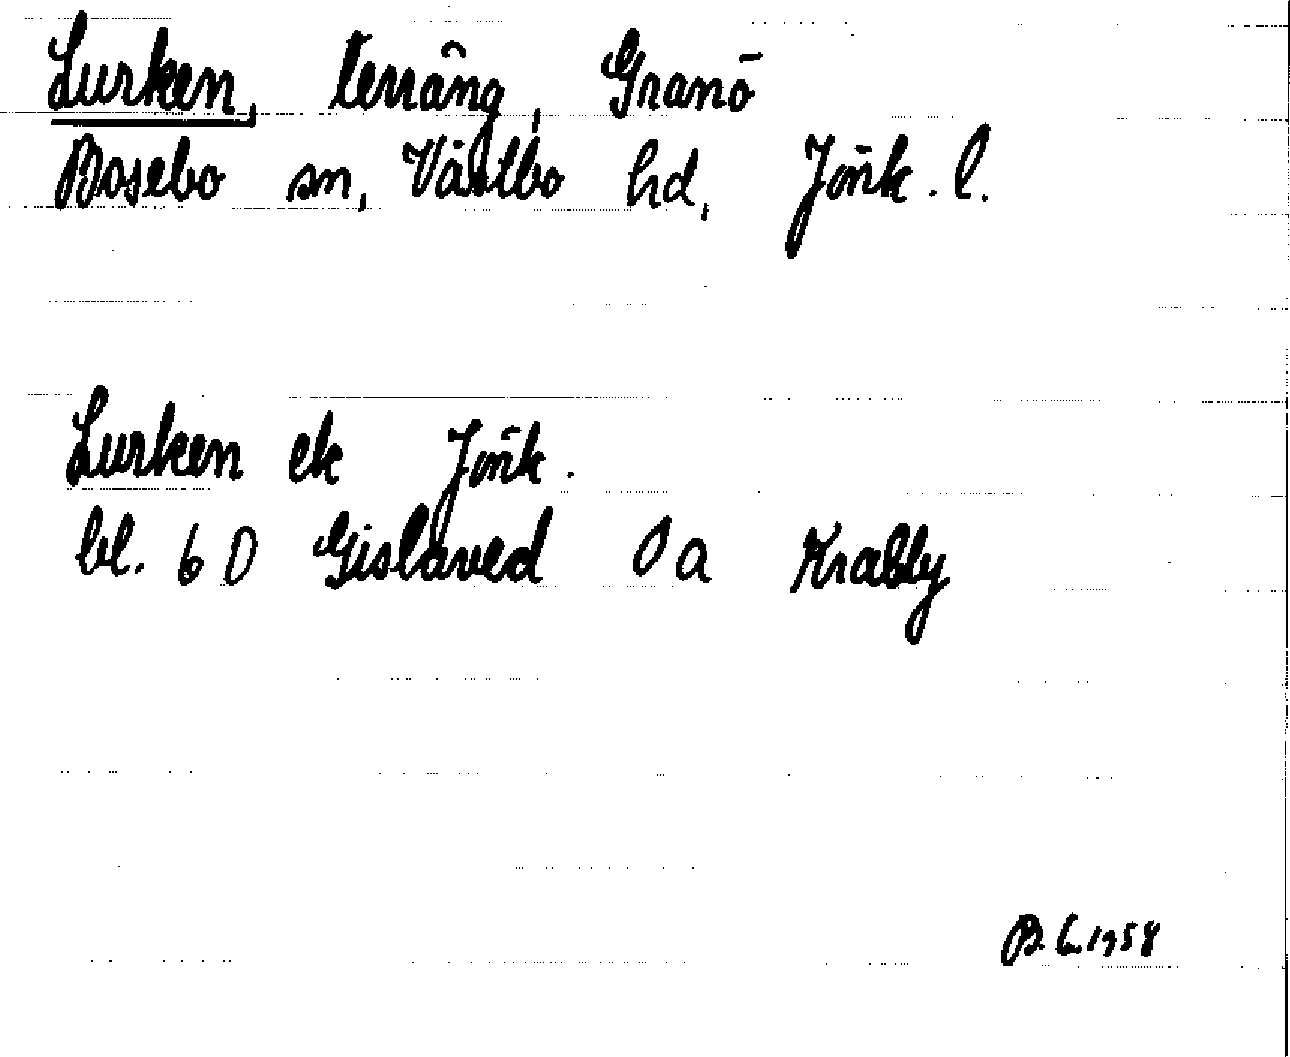 Lurken, terräng, Granö
Bosebo sn, Västbo hd, Jönk. l.
Lurken ek Jönk.
bl. 6 D Gislaved 0 a Krably
1958